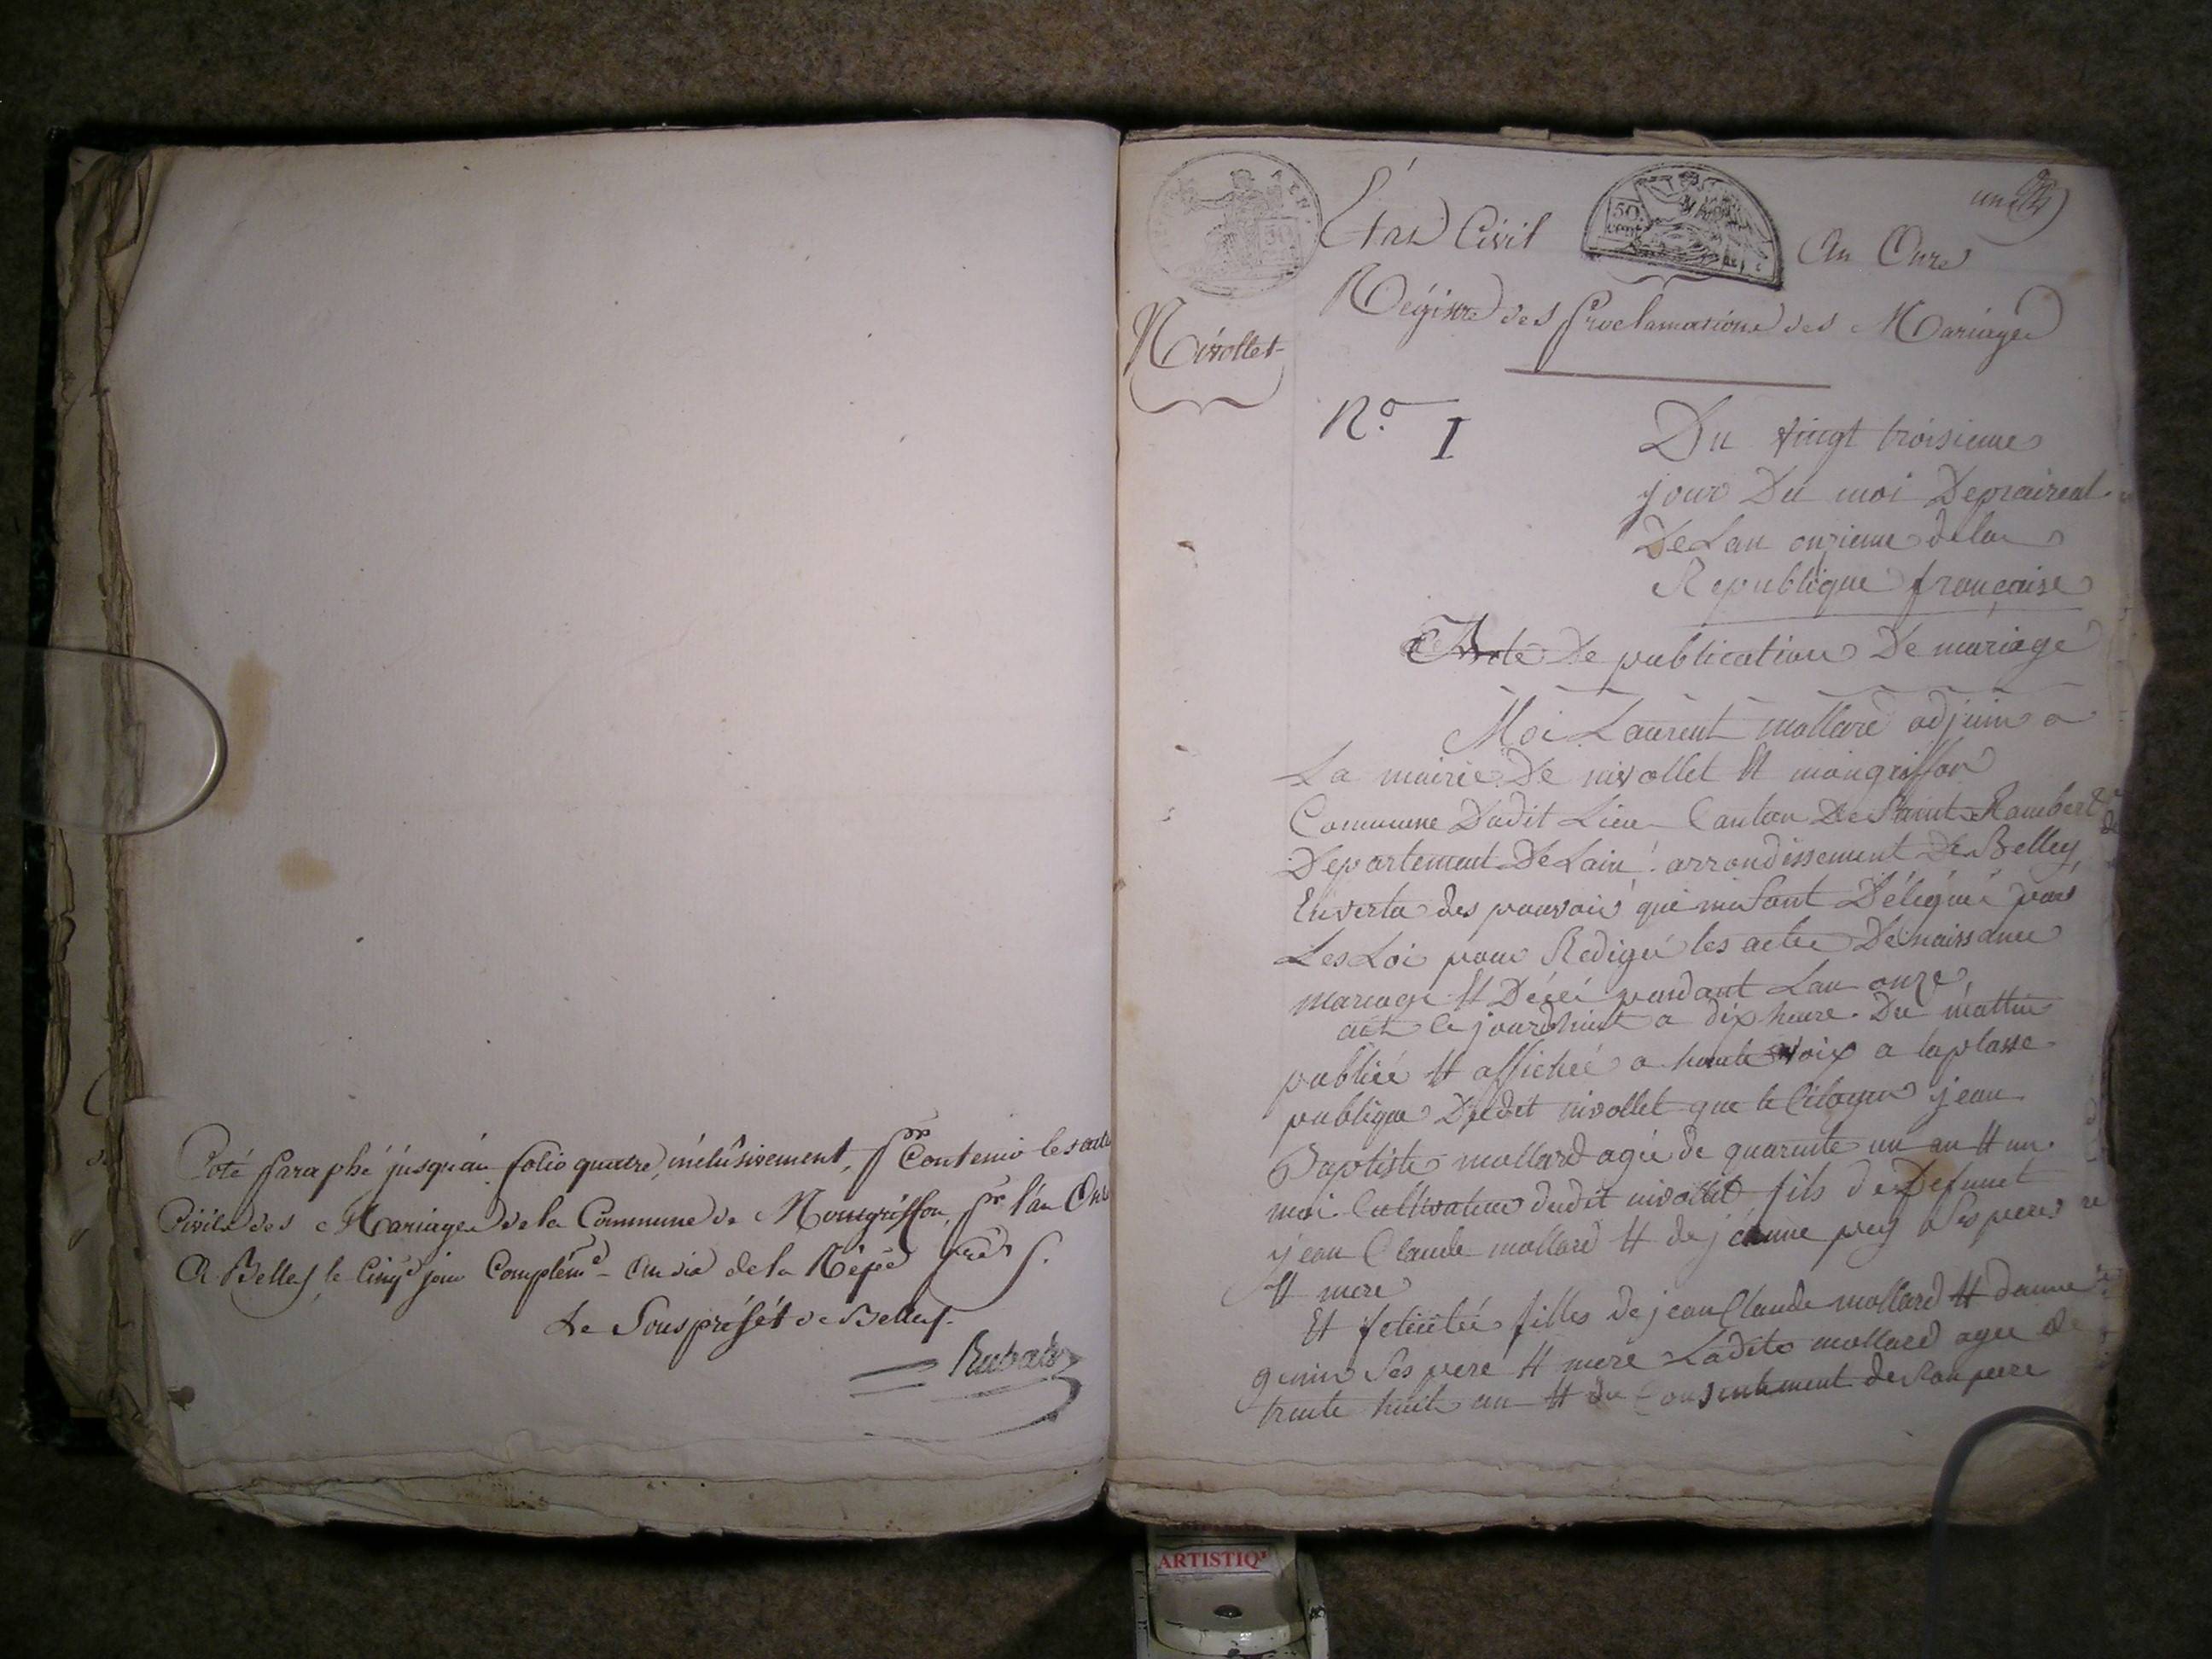 Coté Paraphé jusqu'au folio quatre, inclûsivement, pr Contenir les actes
Civils des Mariages de la Commune de Mongriffon, pr l'an Onze
A Belley le Cinqe jour Complémre an dix de la Répée frse
Le Souspréfét de Belley.
Rubat
un
État Civil
50.
cent
An Onze
Régistre des Proclamations des Mariages
Nivollet
No. 1
Du vingt troisieme
jour Du moi De praireal
De Lan onzieme dela
Republique françaisse
Acte De publication De mariage
Moi Laurent mollard adjoin a
La mairie De nivollet Et mongriffon
Commune Dudit Lieu Canton De Saint Rambert
Departement De Lain arrondissement De Belley
En vertu des pouvoir qui me sont Délégué par
Les Loi pour Redigé les acte De naissance
mariage Et Décé pendant Lan onze
ait ce jourdhuit a dix heure Du mattin
publié Et affiché a haute voix a la plasse
publique Dudit nivollet que le Citoyen jean
Baptiste mollard agée de quarante un an Et un
moi Cultivateur dudit nivollet fils de Defunct
jean Claude mollard Et de jeanne pey Ses pere
Et mere
Et felicité filles de jean Claude mollard Et danne
genin Ses pere Et mere Ladite mollard agee de
trente huit an Et du Consentement de Son pere
ARTISTIQ